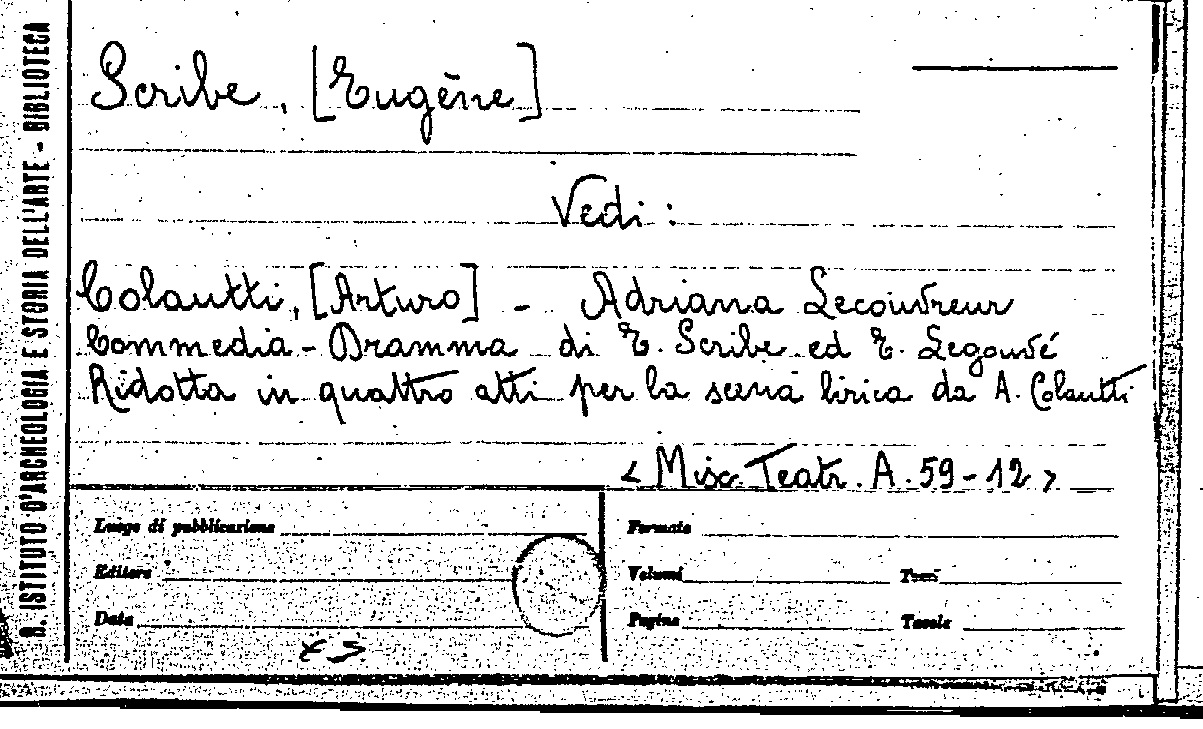 R. ISTITUTO D'ARCHEOLOGIA E STORIA DELL'ARTE - BIBLIOTECA
Scribe, [Eugène]
Vedi :
Colautti, [Arturo] - Adriana Lecouvreur
Commedia - Dramma di E. Scribe ed E. Legouvé
Ridotta in quattro atti per la scena lirica da A. Colautti
< Misc. Teatr. A. 59-12 >
Luogo di pubblicazione
Formato
Editore
Volumi
Tomi
Data
Pagine
Tavole